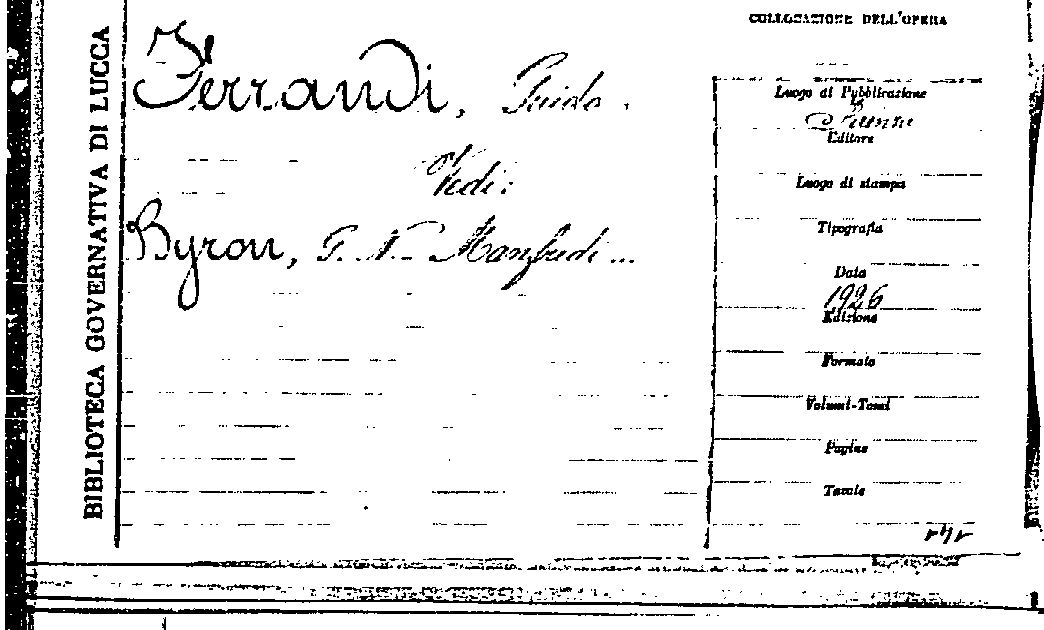 BIBLIOTECA GOVERNATIVA DI LUCCA
Ferrandi, Guido.
Vedi:
Byron, G. N. Manfredi ...
COLLOCAZIONE DELL'OPERA
Luogo di Pubblicazione
Firenze
Editore
Luogo di stampa
Tipografia
Data
1926
Edizione
Formato
Volumi-Tomi
Pagine
Tavole